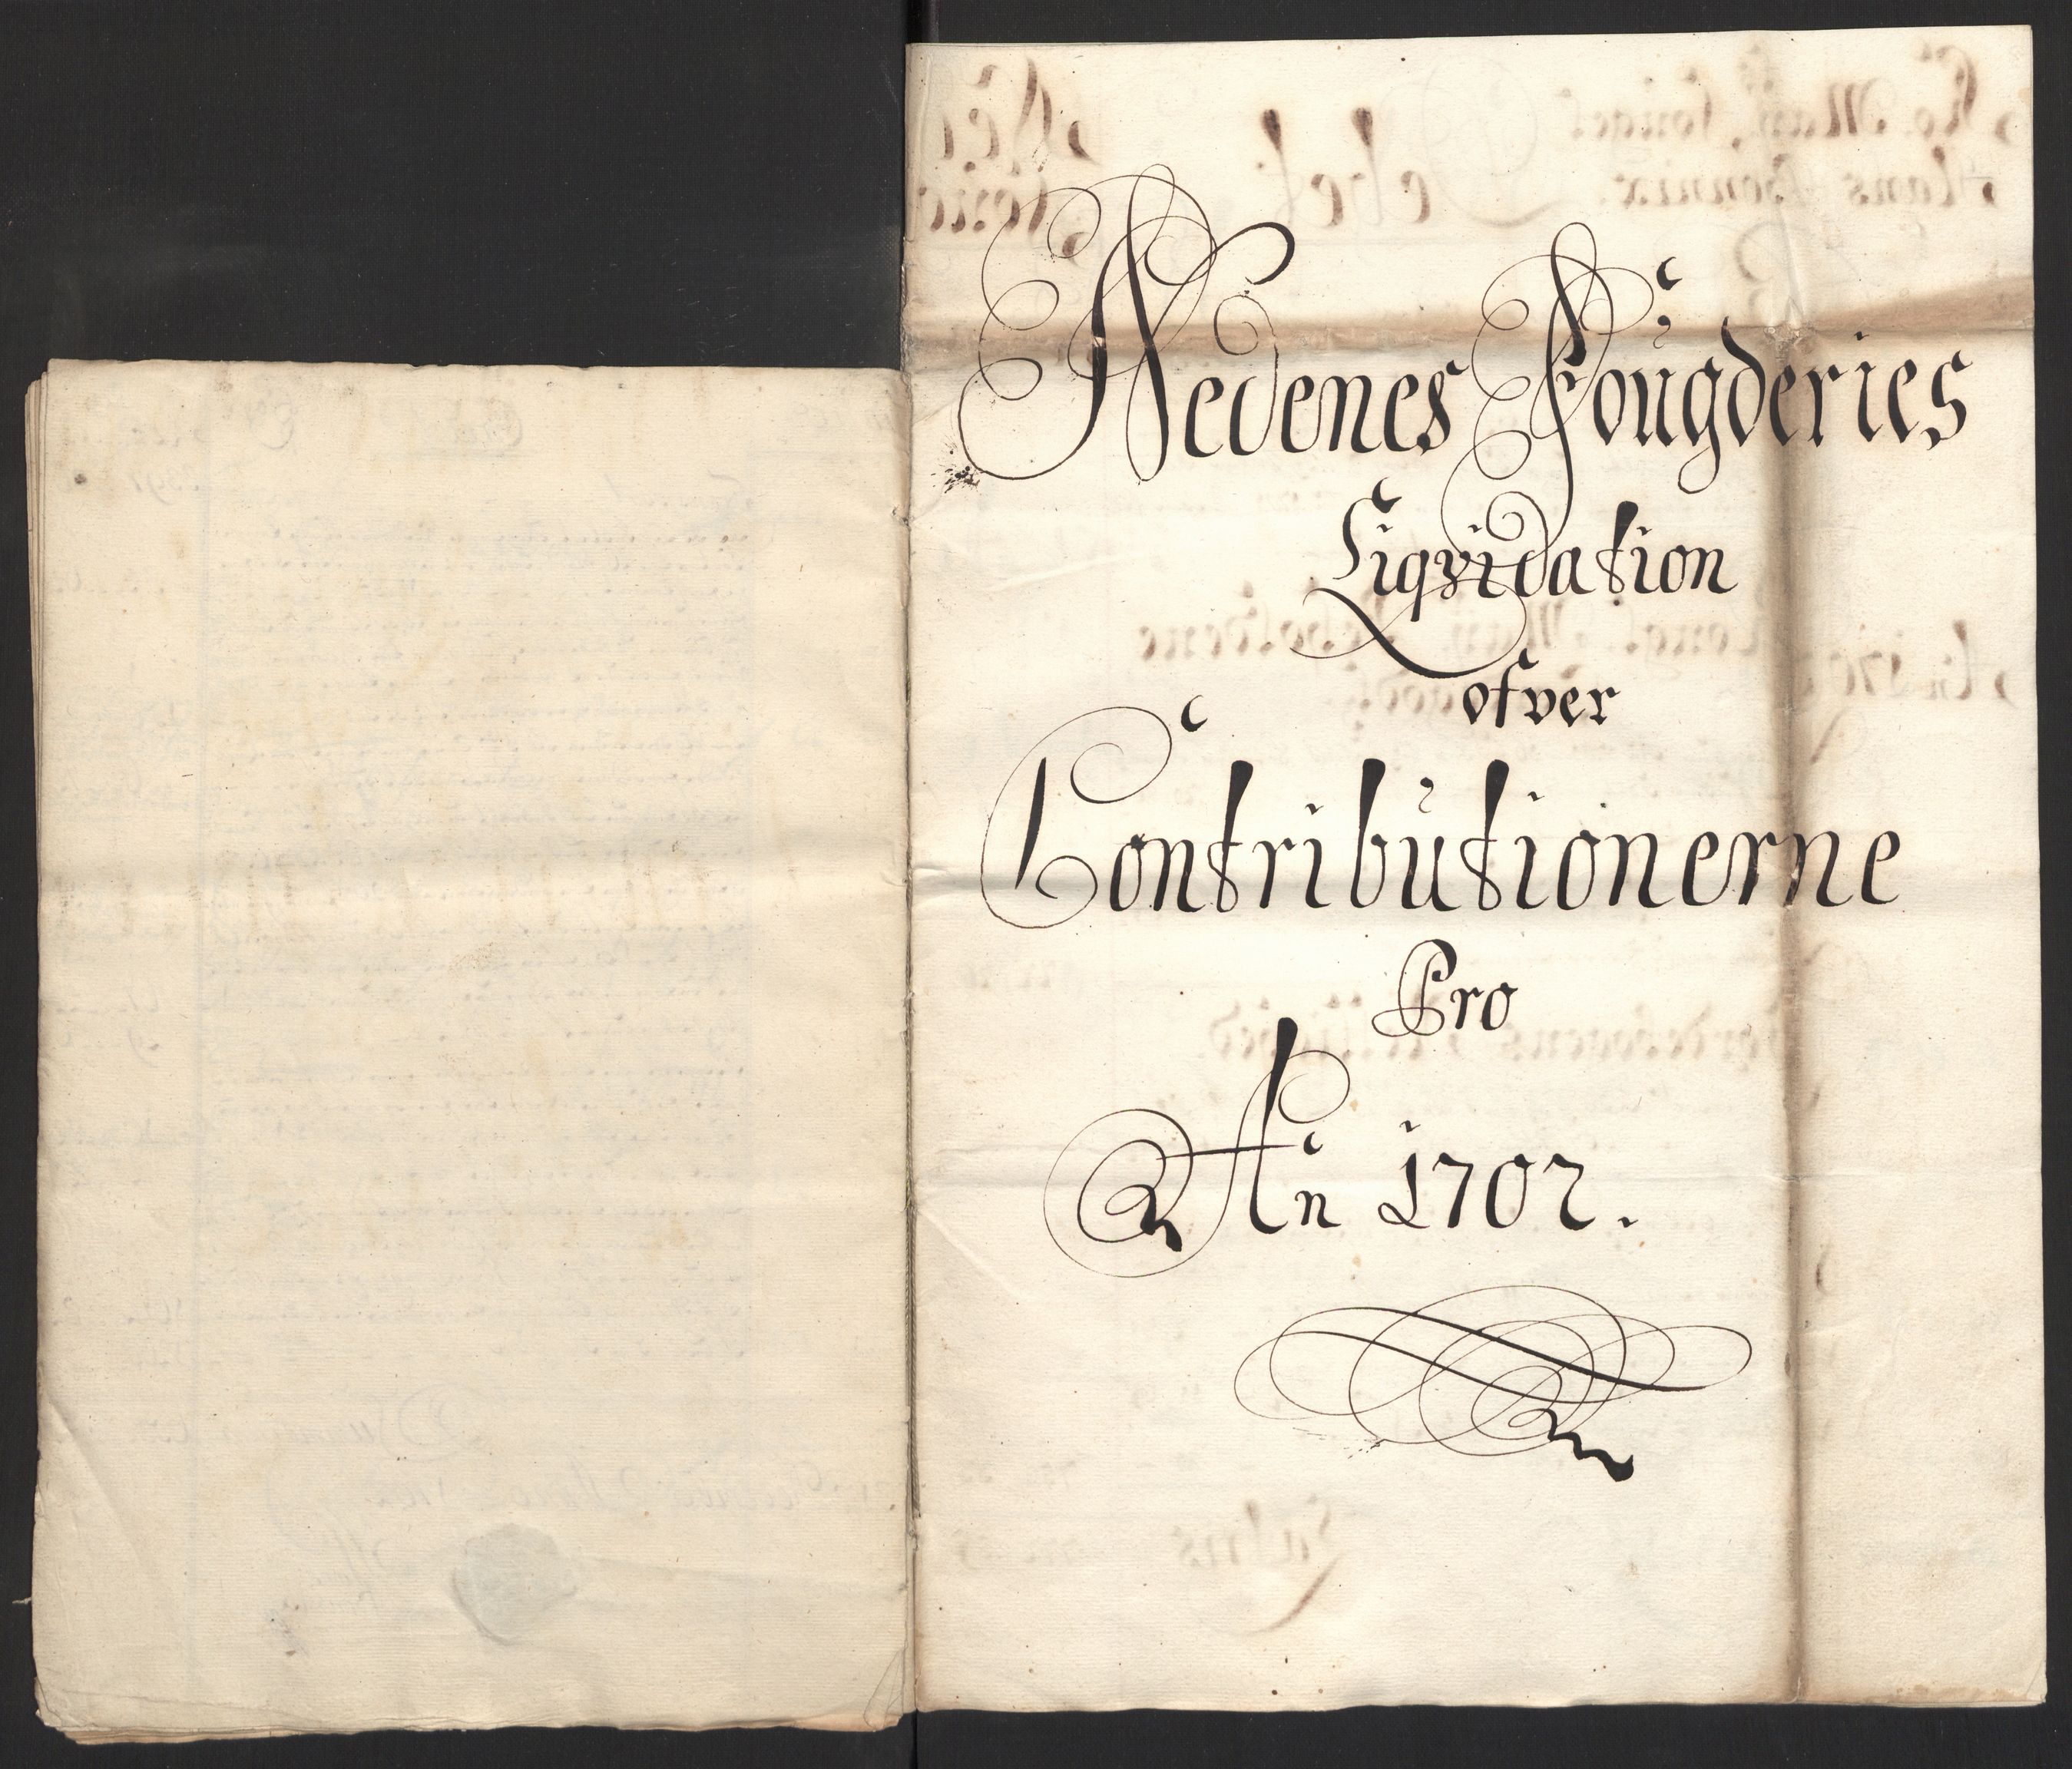 Nedenes Fougderies
Liqvidation
ofver
Contributionerne
Pro
An 1702.